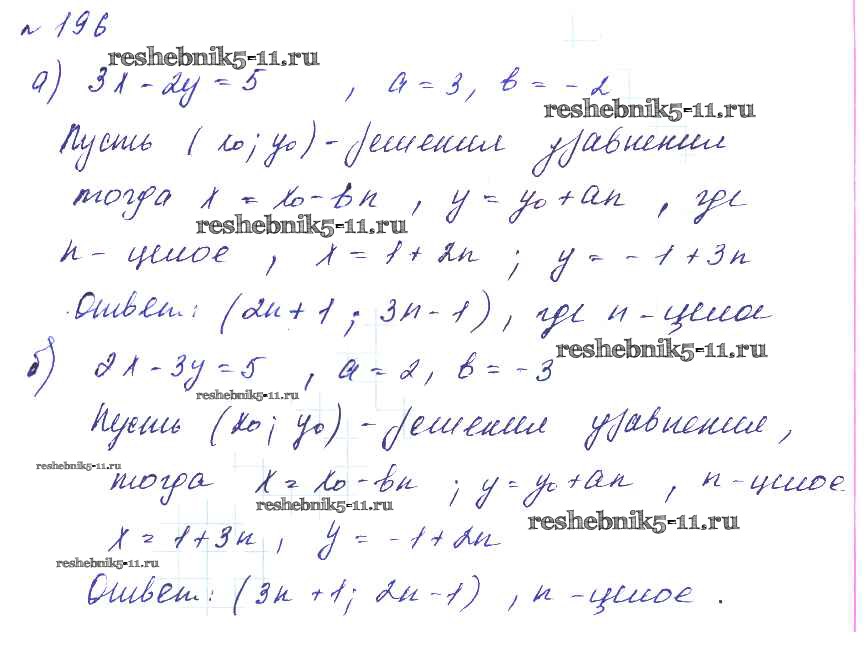 № 196
reshebnik5-11.ru
а) 3x - 2y = 5 , a = 3, b = - 2
reshebnik5-11.ru
Пусть ( x₀; y₀) - решения уравнения
тогда x = x₀ - bn , y = y₀ + an , где
reshebnik5-11.ru
n - целое , x = 1 + 2n ; y = - 1 + 3n
Ответ: (2n + 1 ; 3n - 1) , где n - целое
reshebnik5-11.ru
б) 2x - 3y = 5 , a = 2, b = - 3
reshebnik5-11.ru
Пусть (x₀; y₀) - решения уравнения,
reshebnik5-11.ru
тогда x = x₀ - bn ; y = y₀ + an , n - целое.
reshebnik5-11.ru
reshebnik5-11.ru
x = 1 + 3n , y = - 1 + 2n
reshebnik5-11.ru
Ответ: (3n + 1; 2n - 1) , n - целое .